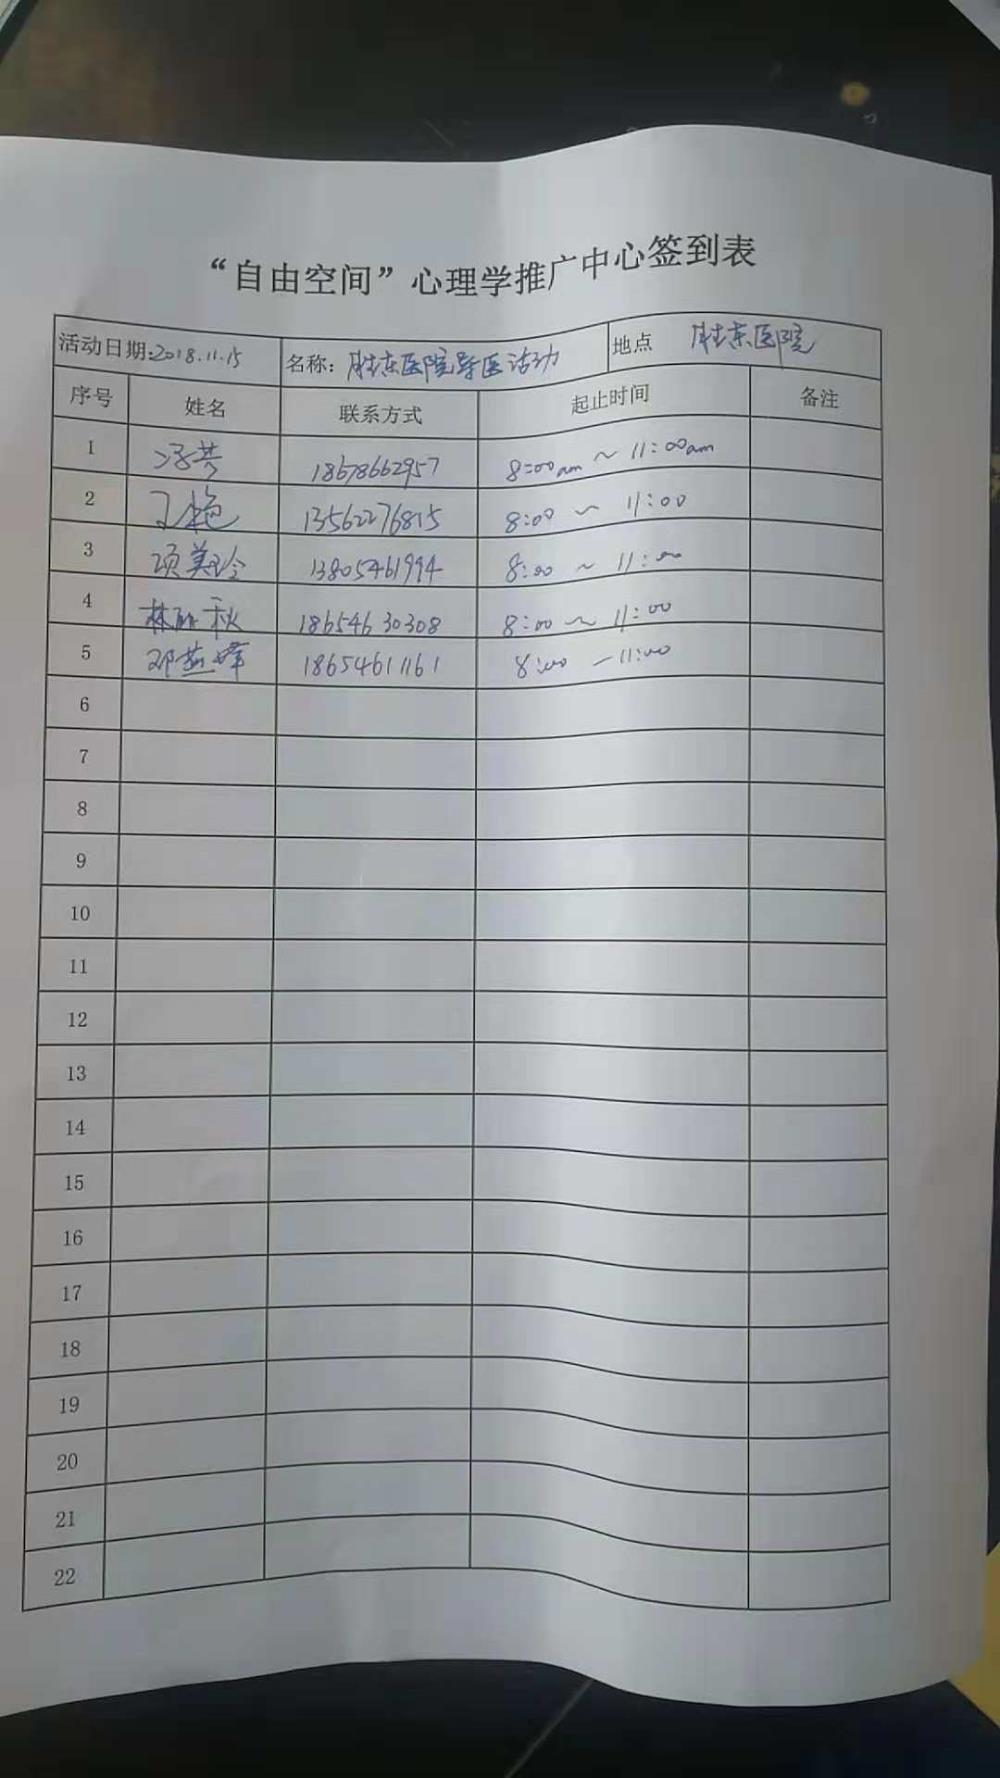 “自由空间”心理学推广中心签到表
活动日期:2018.11.15 名称：胜东医院导医活动 地点 胜东医院
序号 姓名 联系方式 起止时间 备注
1 冯共 18678662957 8:00am ~ 11:00am
2 王艳 13562276815 8:00 ~ 11:00
3 项美玲 13805461994 8:00 ~ 11:00
4 林 秋 18654630308 8:00 ~ 11:00
5 邓燕峰 18654611161 8:00 — 11:00
6
7
8
9
10
11
12
13
14
15
16
17
18
19
20
21
22